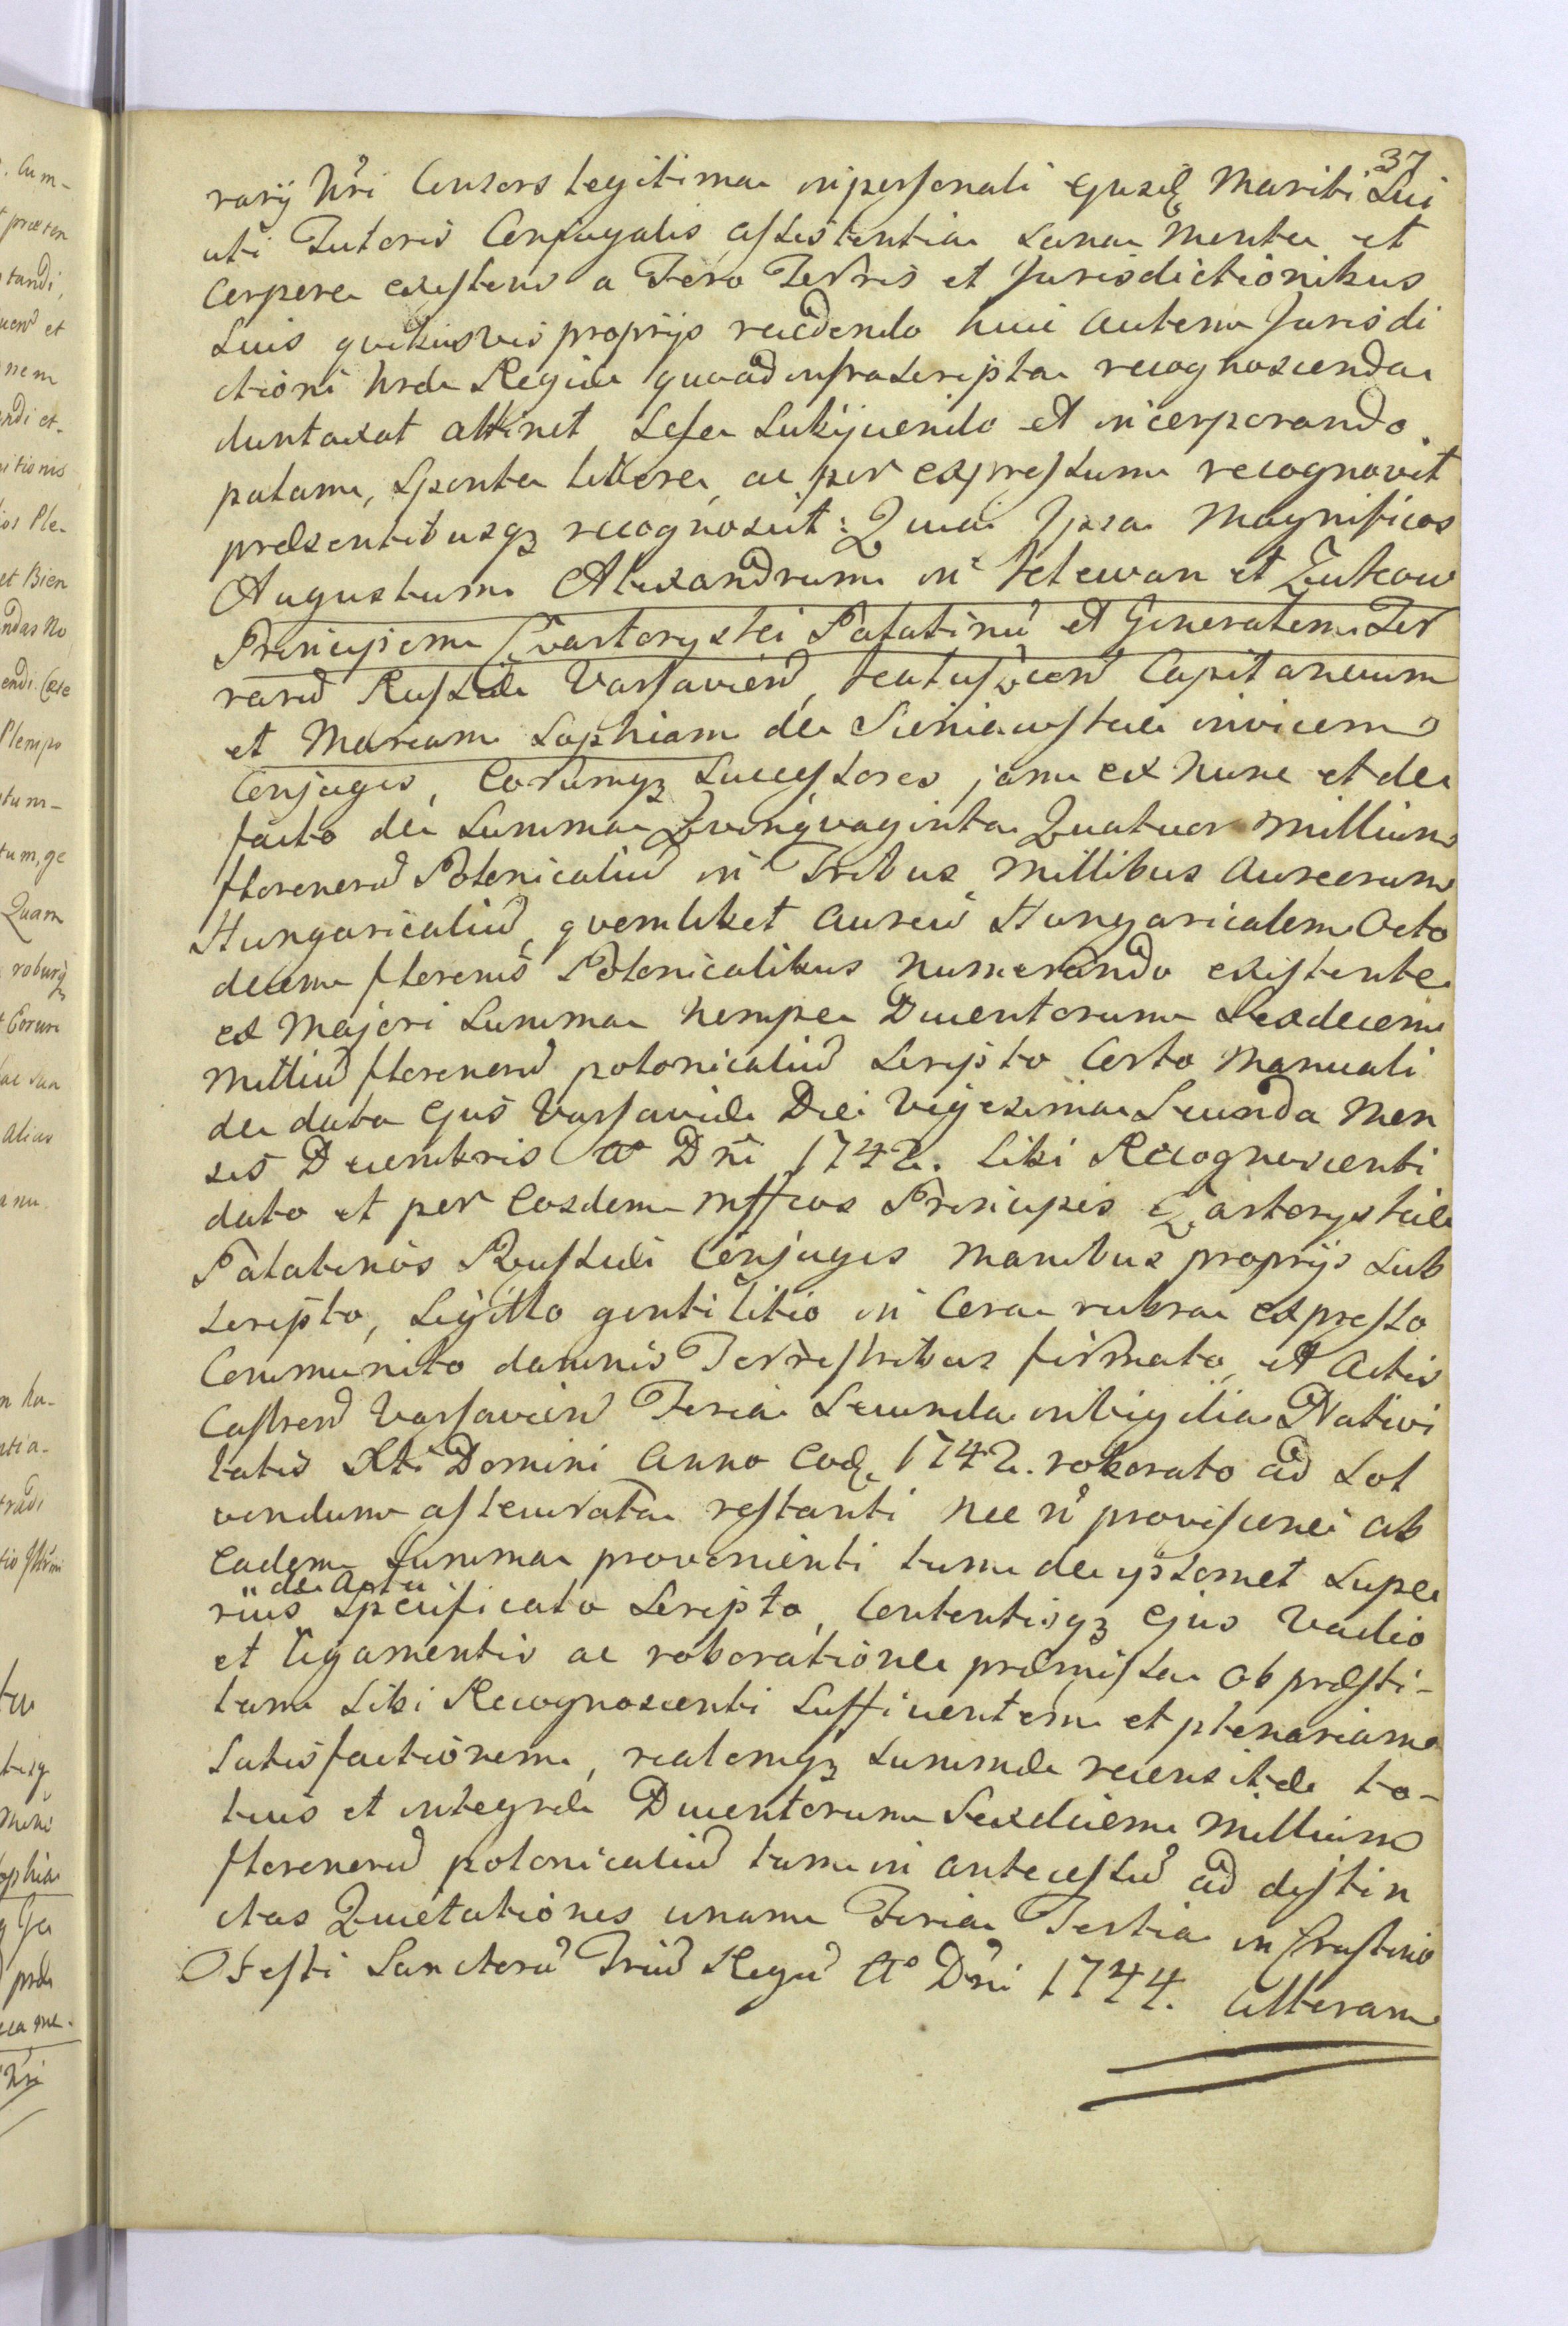 37
rarij Nri Consors legitima in personali ejusdꝫ Mariti Sui
uti Tutoris Conjugalis assistentia sana mente et
Corpore existens a Foro Terris et Jurisdictionibus
Suis quibusvis proprijs recedendo huic autem Jurisdi
ctioni Nræ Regiæ quoad infrascripta recognoscenda
duntaxat attinet Sese Subijciendo et incorporando
palam, Sponte libere, ac per expressum recognovit
præsentibusqꝫ recognoscit: Quia Ipsa Magnificos
Augustum Alexandrum in Klewan et Zukow
Principem Czartoryski Palatinū et Generalem Ter
rarū Russiæ Varsavien, Capitaneum
et Mariam Sophiam de Sieniawskie invicem
Conjuges, Eorumqꝫ Successores, jam ex nunc et de
facto de Summa Quinquaginta Quatuor Millium
florenorū Polonicaliū in Tribus Millibus Aureorum
Hungaricaliū, quemlibet Aureū Hungaricalem Octo
decem florenis Polonicalibus numerando existente
ex Majori Summa nempe Ducentorum Sexdecem
Milliū florenorū polonicaliū Scripto Certo Manuali
de data Ejus Varsaviæ Die Vigesima Secunda Men
sis Decembris Ao Dni 1742. Sibi Recognoscenti
dato et per Eosdem Mffcos Principes Czartoryskie
Palatinos Russiæ Conjuges Manibus proprijs Sub
scripto, Sigillo gentilitio in Cera rubra expresso
Communito damnis Terrestribus firmato, et Actis
Castren Varsavien Feria Secunda in Vigilia Nativi
tatis Xti Domini Anno Eodꝫ 1742. roborato ad Sol
vendum assecurata restanti nec n̄ provisione ab
Eadem Summa provenienti tum de ipsomet Supe
" de Actu
rius Specificato Scripto, Contentisqꝫ Ejus Vadio
et ligamentis ac roboratione præmissa ob præsti-
tam Sibi Recognoscenti Sufficientem et plenariam
Satisfactionem, realemqꝫ Summæ recensitæ to-
tius et integræ Ducentorum Sexdecem Millium
florenorū polonicaliū tum in antecessū ad distin
ctas Quietationes unam Feria Tertia in Crastino
Festi Sanctorū Triū Regū Ao Dni 1744. Alteram